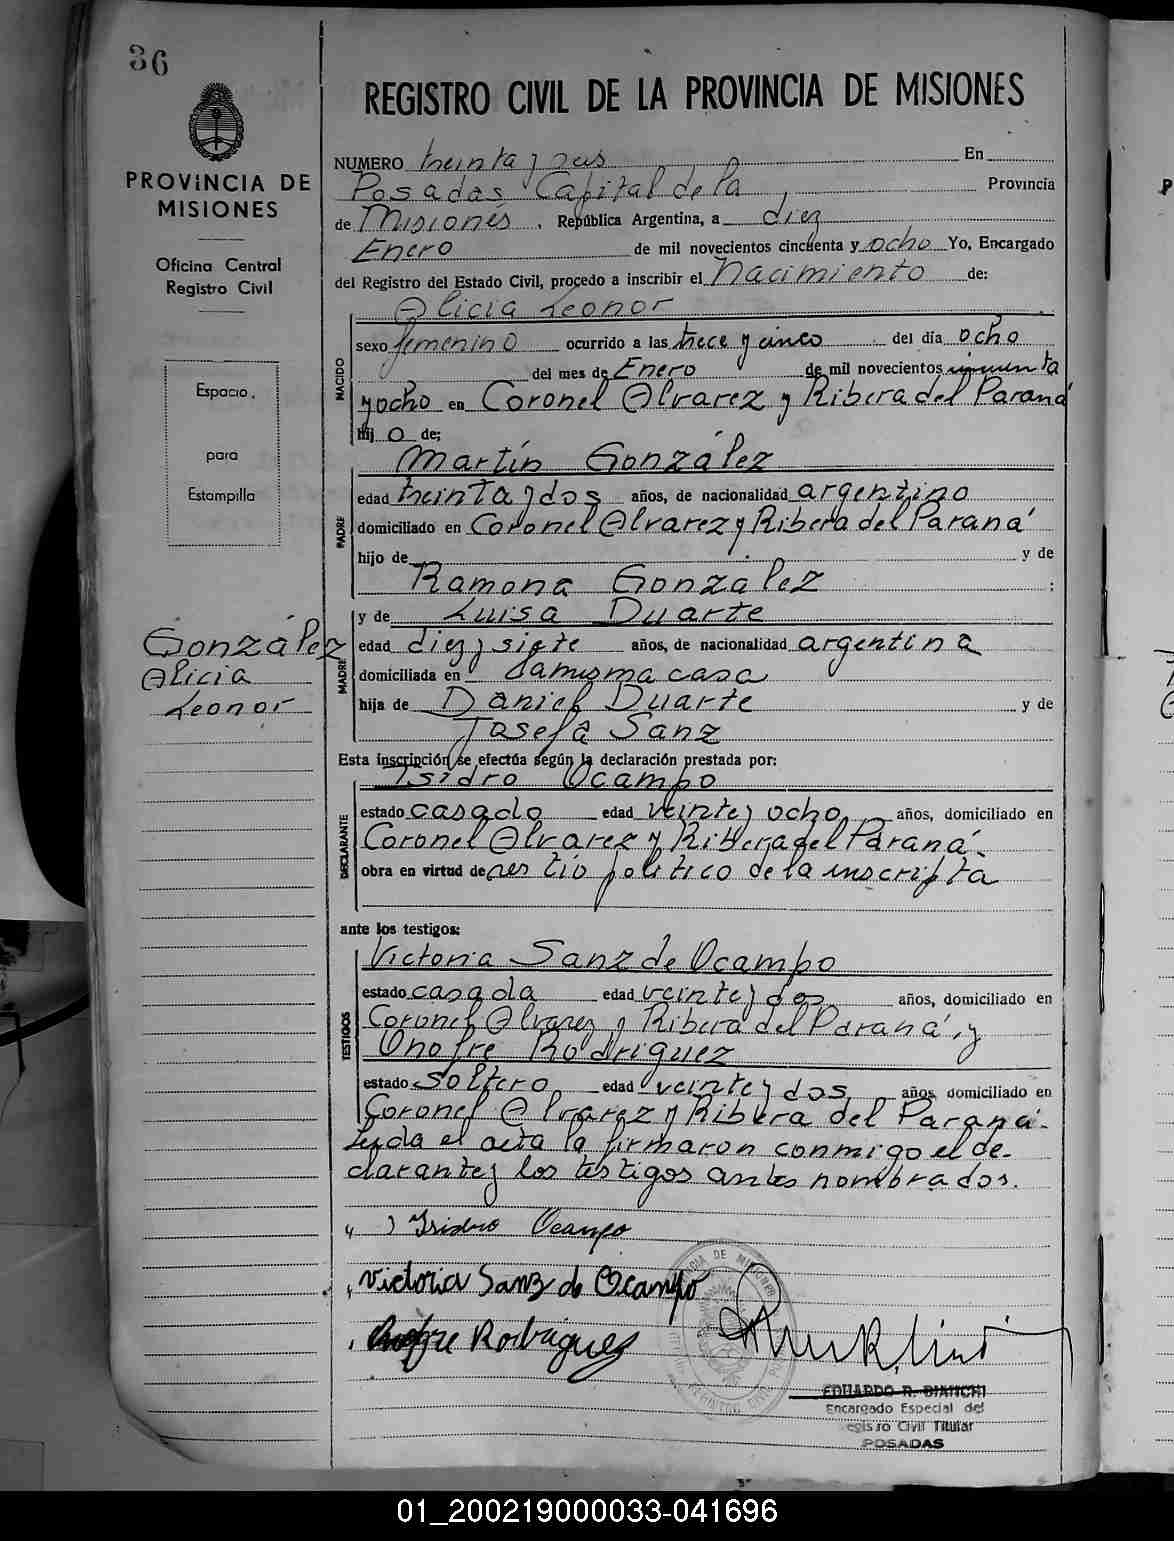 36
PROVINCIA DE
MISIONES
Oficina Central
Registro Civil
Espacio
para
Estampilla
González
Alicia
Leonor
REGISTRO CIVIL DE LA PROVINCIA DE MISIONES
NUMERO treinta y seis En
Posadas, Capital de la Provincia
de Misiones, República Argentina, a diez
Enero de mil novecientos cincuenta y ocho Yo, Encargado
del Registro del Estado Civil, procedo a inscribir el nacimiento de:
Alicia Leonor
NACIDO
sexo femenino ocurrido a las trece y cinco del día ocho
del mes de Enero de mil novecientos cincuenta
y ocho en Coronel Alvarez y Ribera del Paraná
hij o de;
Martín González
PADRE
edad treinta y dos años, de nacionalidad argentino
domiciliado en Coronel Alvarez y Ribera del Paraná
hijo de y de
Ramona Gonzalez ;
y de Luisa Duarte
MADRE
edad diez y siete años, de nacionalidad argentina
domiciliada en la misma casa
hija de Daniel Duarte y de
Josefa Sanz
Esta inscripción se efectúa según la declaración prestada por:
Isidro Ocampo
DECLARANTE
estado casado edad veinte y ocho años, domiciliado en
Coronel Alvarez y Ribera del Paraná.
obra en virtud de ser tío político de la inscripta
ante los testigos:
Victoria Sanz de Ocampo
TESTIGOS
estado casada edad veinte y dos años, domiciliado en
Coronel Alvarez y Ribera del Paraná, y
Onofre Rodriguez
estado soltero edad veinte y dos años domiciliado en
Coronel Alvarez y Ribera del Paraná.
Leida el acta la firmaron conmigo el de-
clarante y los testigos antes nombrados.
Isidro Ocampo
Victoria Sanz de Ocampo
Onofre Rodrigues
EDUARDO R. BIANCHI
Encargado Especial del
Registro Civil Titular
POSADAS
01_200219000033-041696